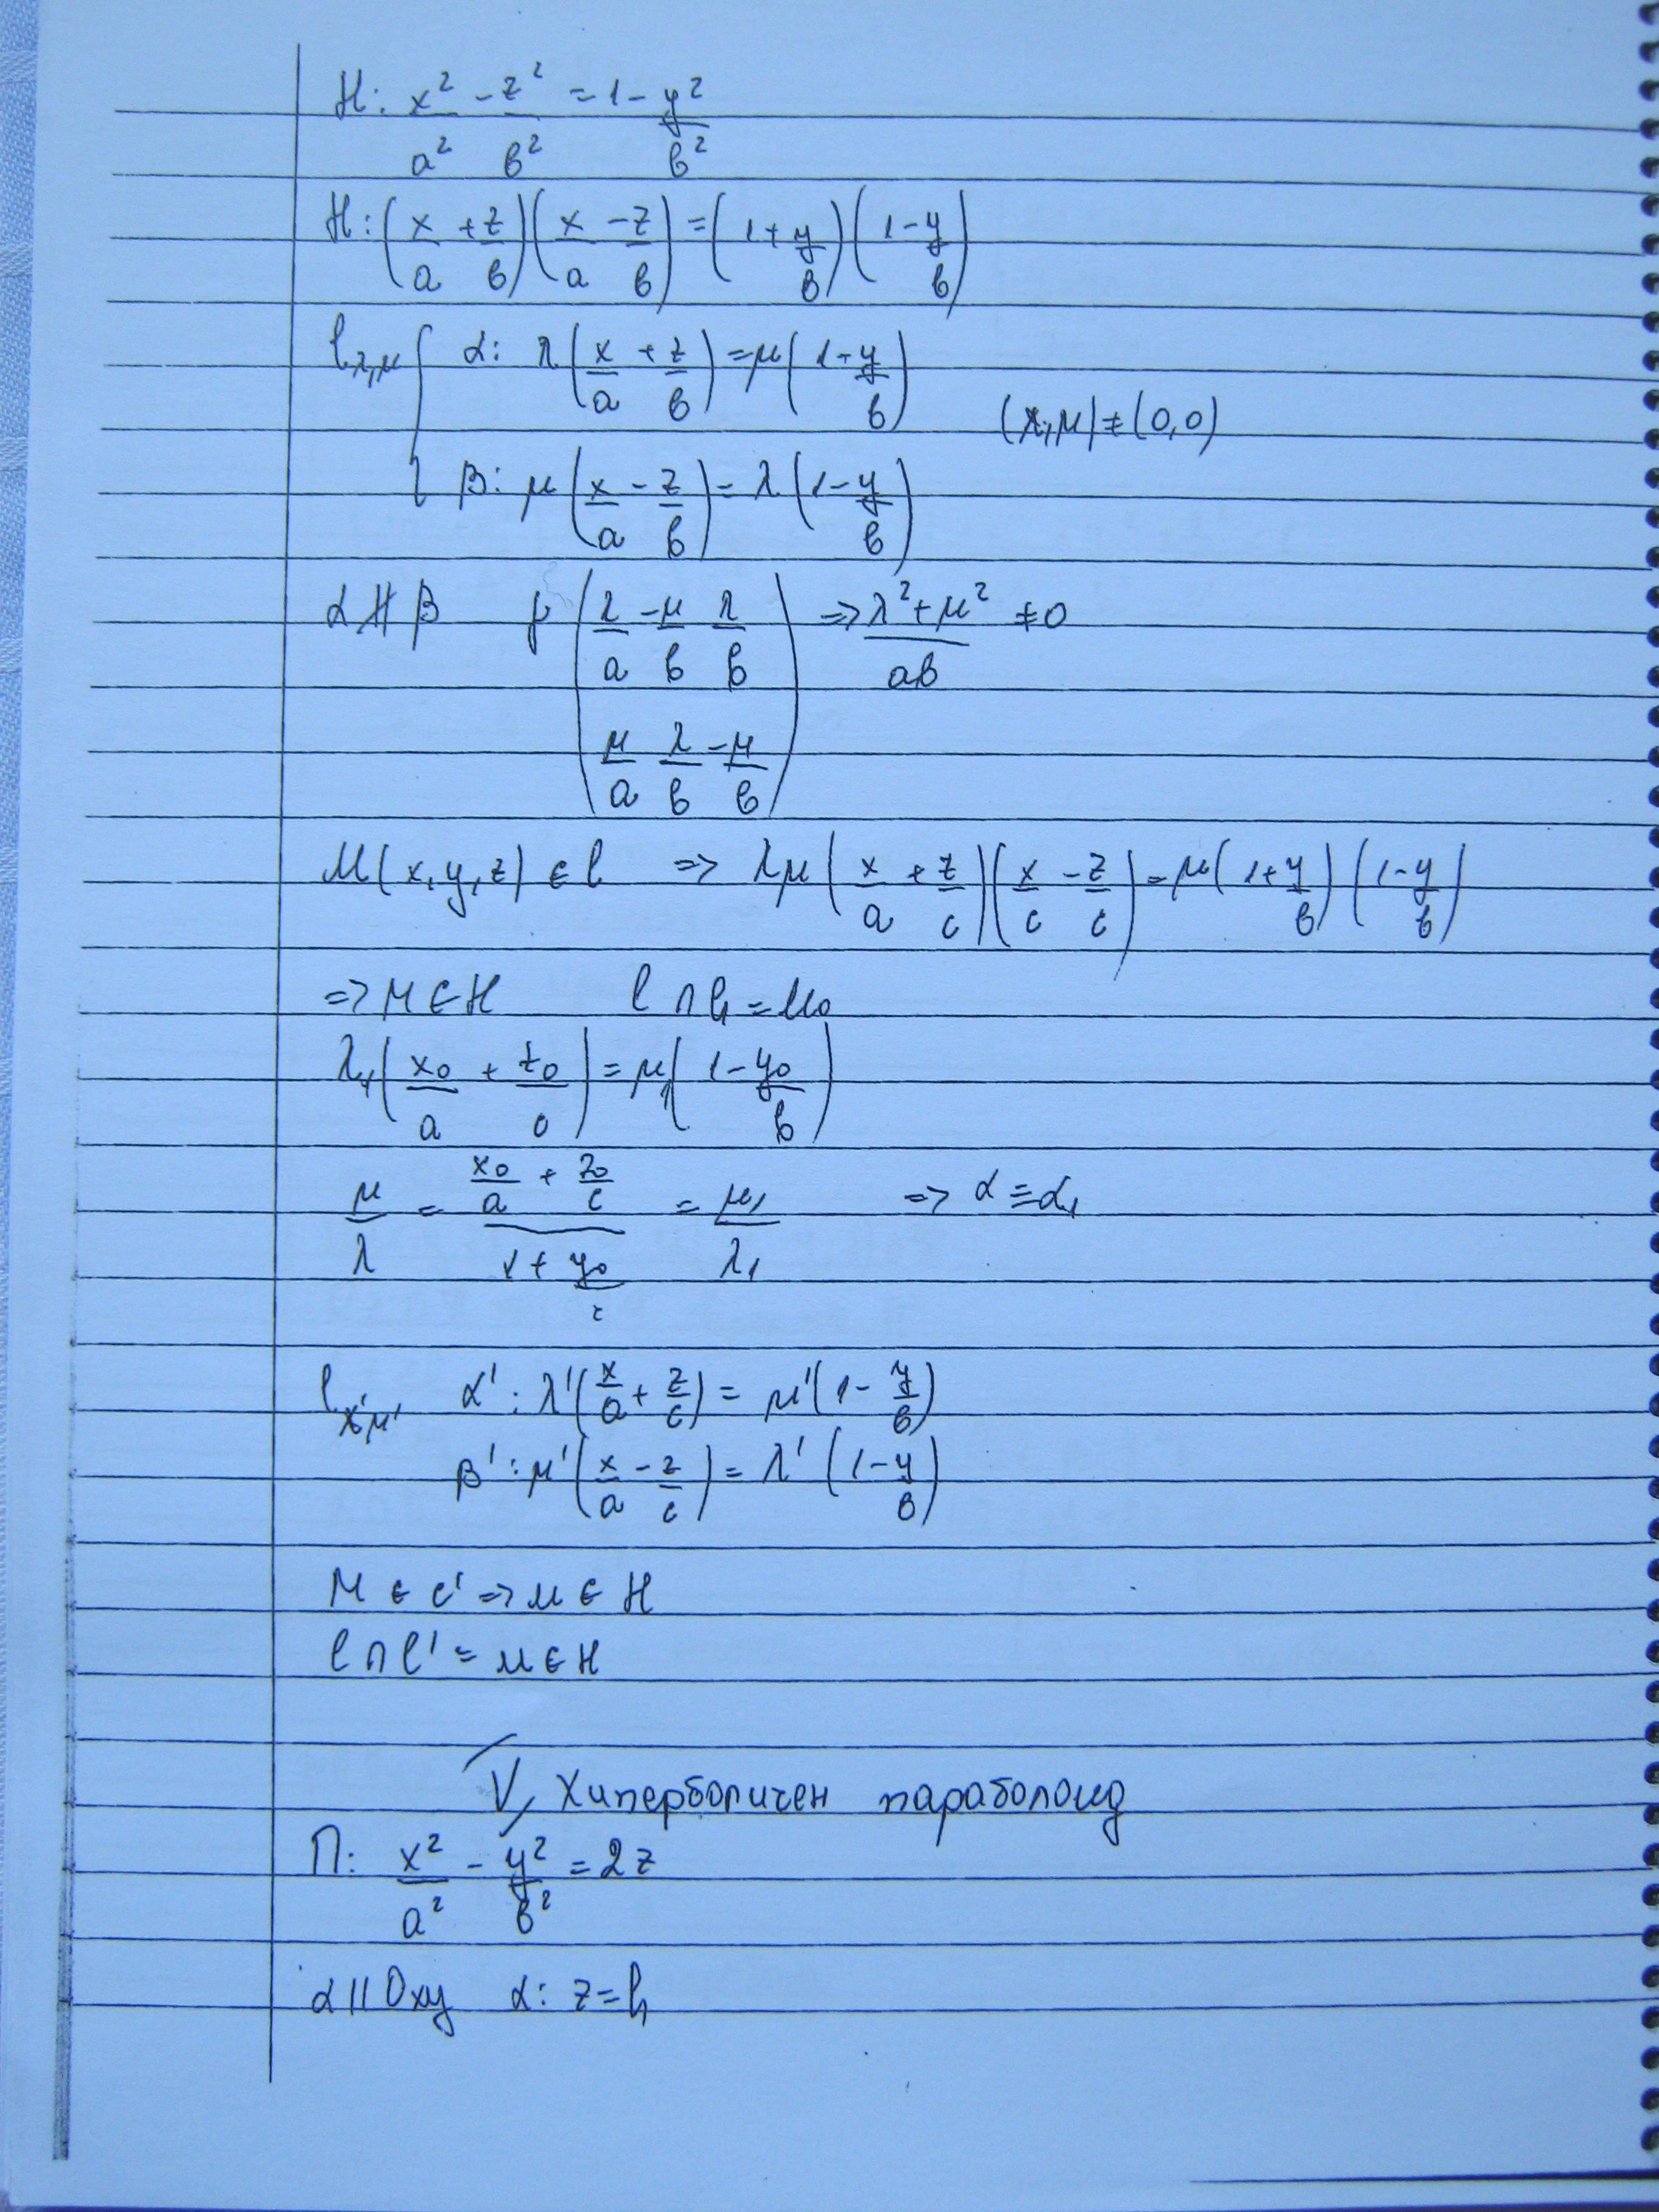 H: x²/a² - z²/в² = 1 - y²/в²
H: (x/a + z/в)(x/a - z/в) = (1 + y/в)(1 - y/в)
l λ,μ { α: λ(x/a + z/в) = μ(1 + y/в)
(λ,μ) ≠ (0,0)
β: μ(x/a - z/в) = λ(1 - y/в)
α ∦ β ρ (λ/a -μ/в λ/в
μ/a λ/в -μ/в) => λ²+μ²/aв ≠ 0
M(x,y,z) ∈ l => λμ(x/a + z/c)(x/c - z/c) = μ(1 + y/в)(1 - y/в)
=> M ∈ H l ∩ l₁ = M₀
λ₁(x₀/a + z₀/c) = μ₁(1 - y₀/в)
μ/λ = (x₀/a + z₀/c)/(1 + y₀/c) = μ₁/λ₁ => α ≡ α₁
l λ'μ' α': λ'(x/a + z/c) = μ'(1 - y/в)
β': μ'(x/a - z/c) = λ'(1 - y/в)
M ∈ l' => M ∈ H
l ∩ l' = M ∈ H
V, Хиперболичен параболоид
П: x²/a² - y²/в² = 2z
α || Oxy α: z = h